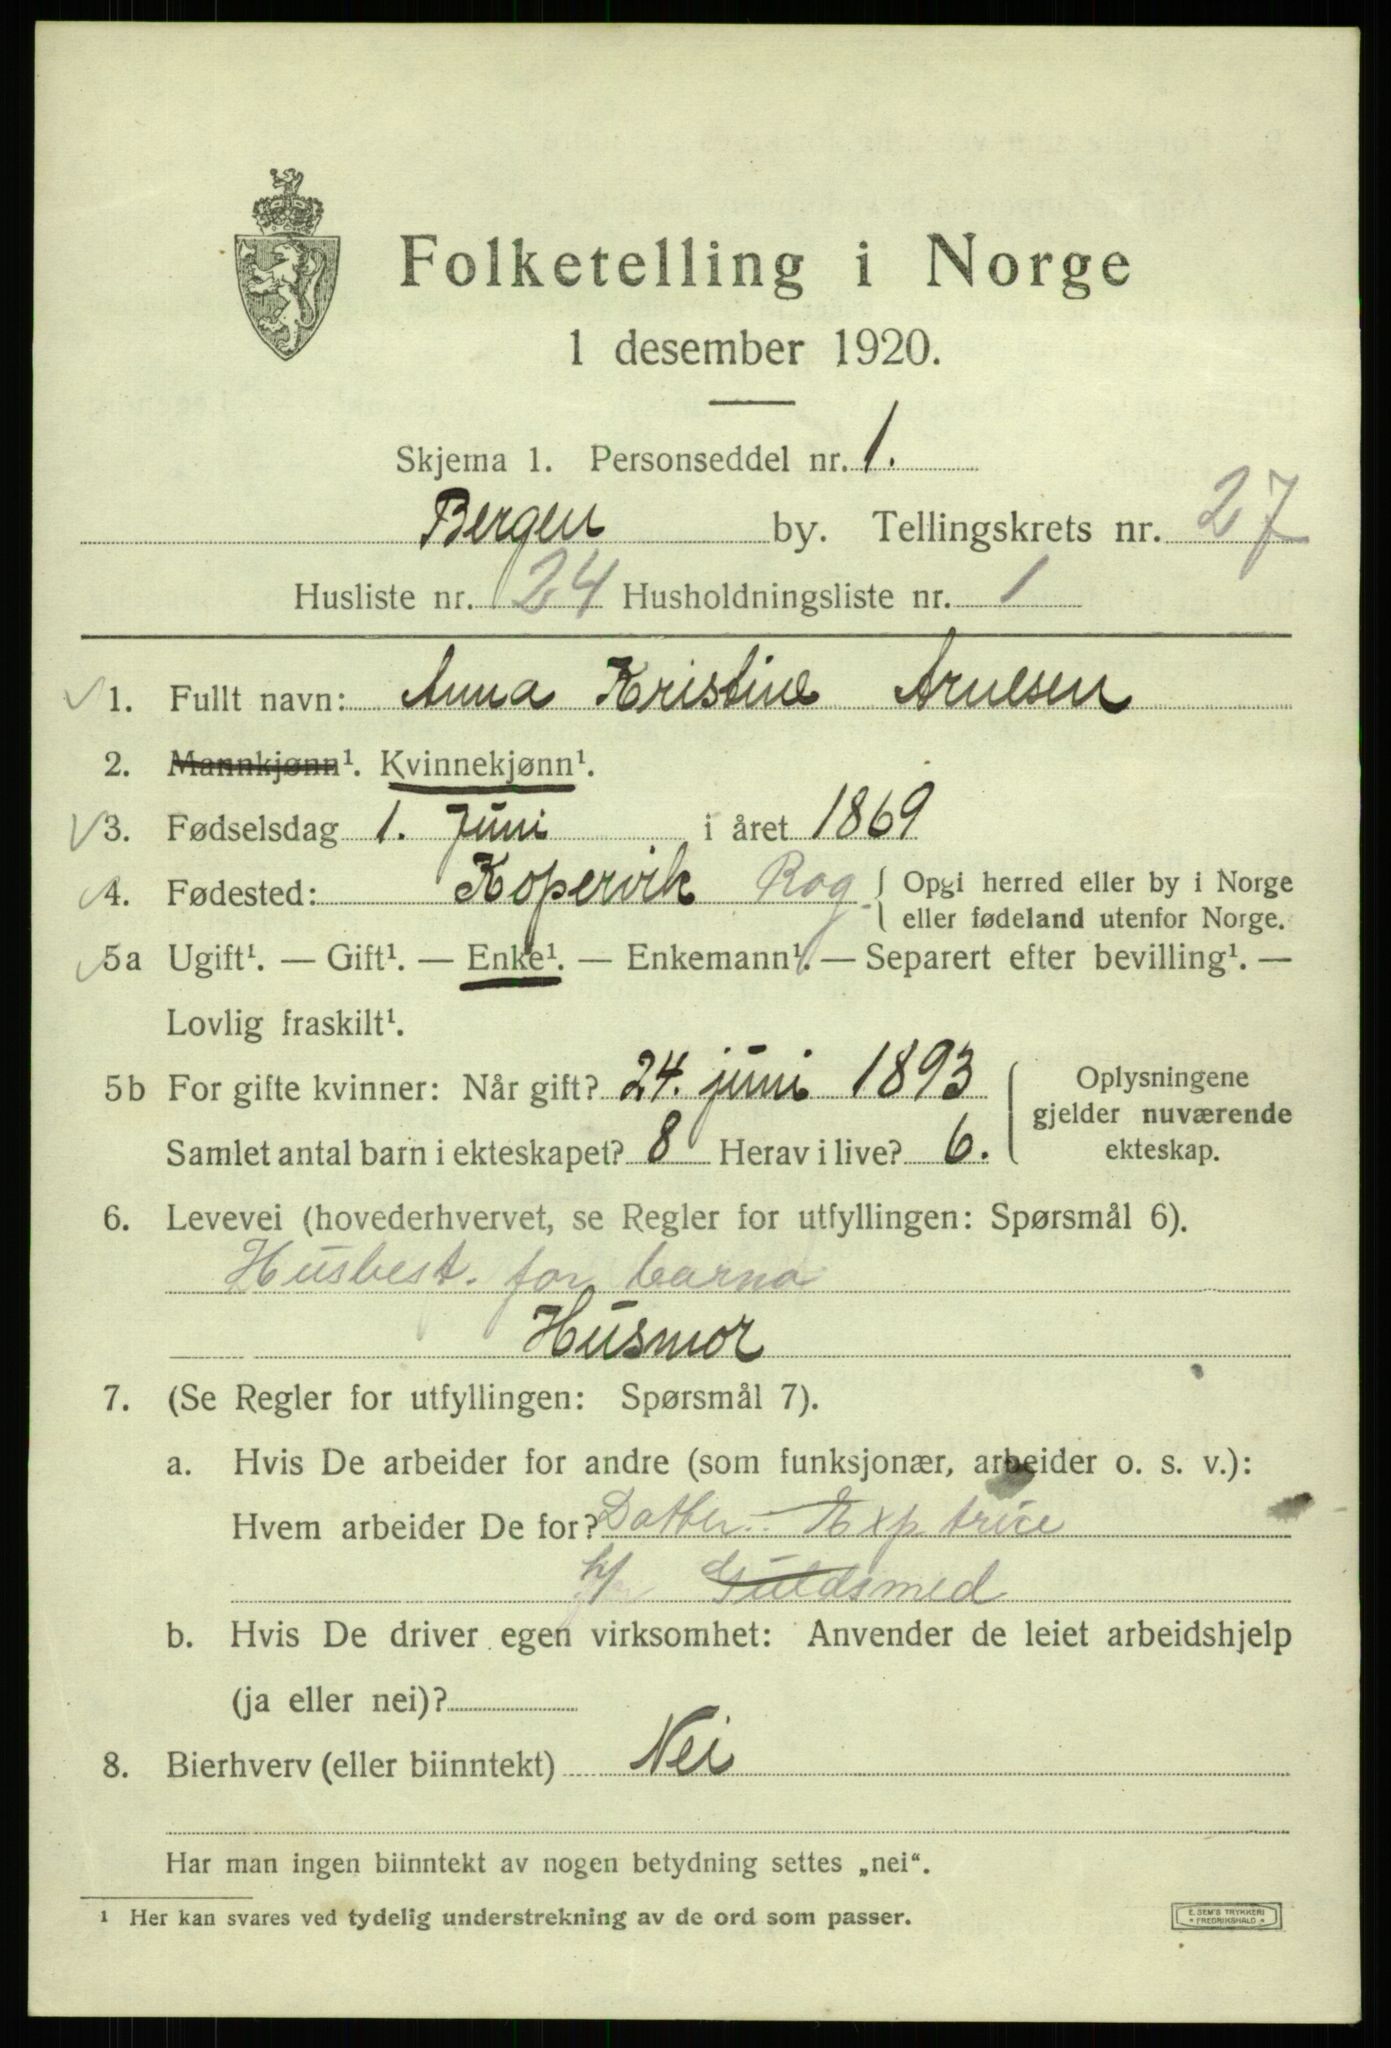 Folketelling i Norge
1 desember 1920.
Skjema 1. Personseddel nr. 1.
Bergen by. Tellingskrets nr. 27
Husliste nr. 24 Husholdningsliste nr. 1
1. Fullt navn: Anna Kristine Arnesen
2. Mannkjønn¹. Kvinnekjønn¹.
3. Fødselsdag 1. Juni i året 1869
4. Fødested: Kopervik Rog { Opgi herred eller by i Norge
eller fødeland utenfor Norge.
5a Ugift¹. — Gift¹. — Enke¹. — Enkemann¹. — Separert efter bevilling¹. —
Lovlig fraskilt¹.
5b For gifte kvinner: Når gift? 24. juni 1893
Samlet antal barn i ekteskapet? 8 Herav i live? 6.
Oplysningene
gjelder nuværende
ekteskap.
6. Levevei (hovederhvervet, se Regler for utfyllingen: Spørsmål 6).
Husbest. for barna
Husmor
7. (Se Regler for utfyllingen: Spørsmål 7).
a. Hvis De arbeider for andre (som funksjonær, arbeider o. s. v.):
Hvem arbeider De for? Datter: Exp trice
Guldsmed
b. Hvis De driver egen virksomhet: Anvender de leiet arbeidshjelp
(ja eller nei)?
8. Bierhverv (eller biinntekt) Nei
Har man ingen biinntekt av nogen betydning settes „nei“.
¹ Her kan svares ved tydelig understrekning av de ord som passer.
E. SEM'S TRYKKERI
* FREDRIKSHALD *